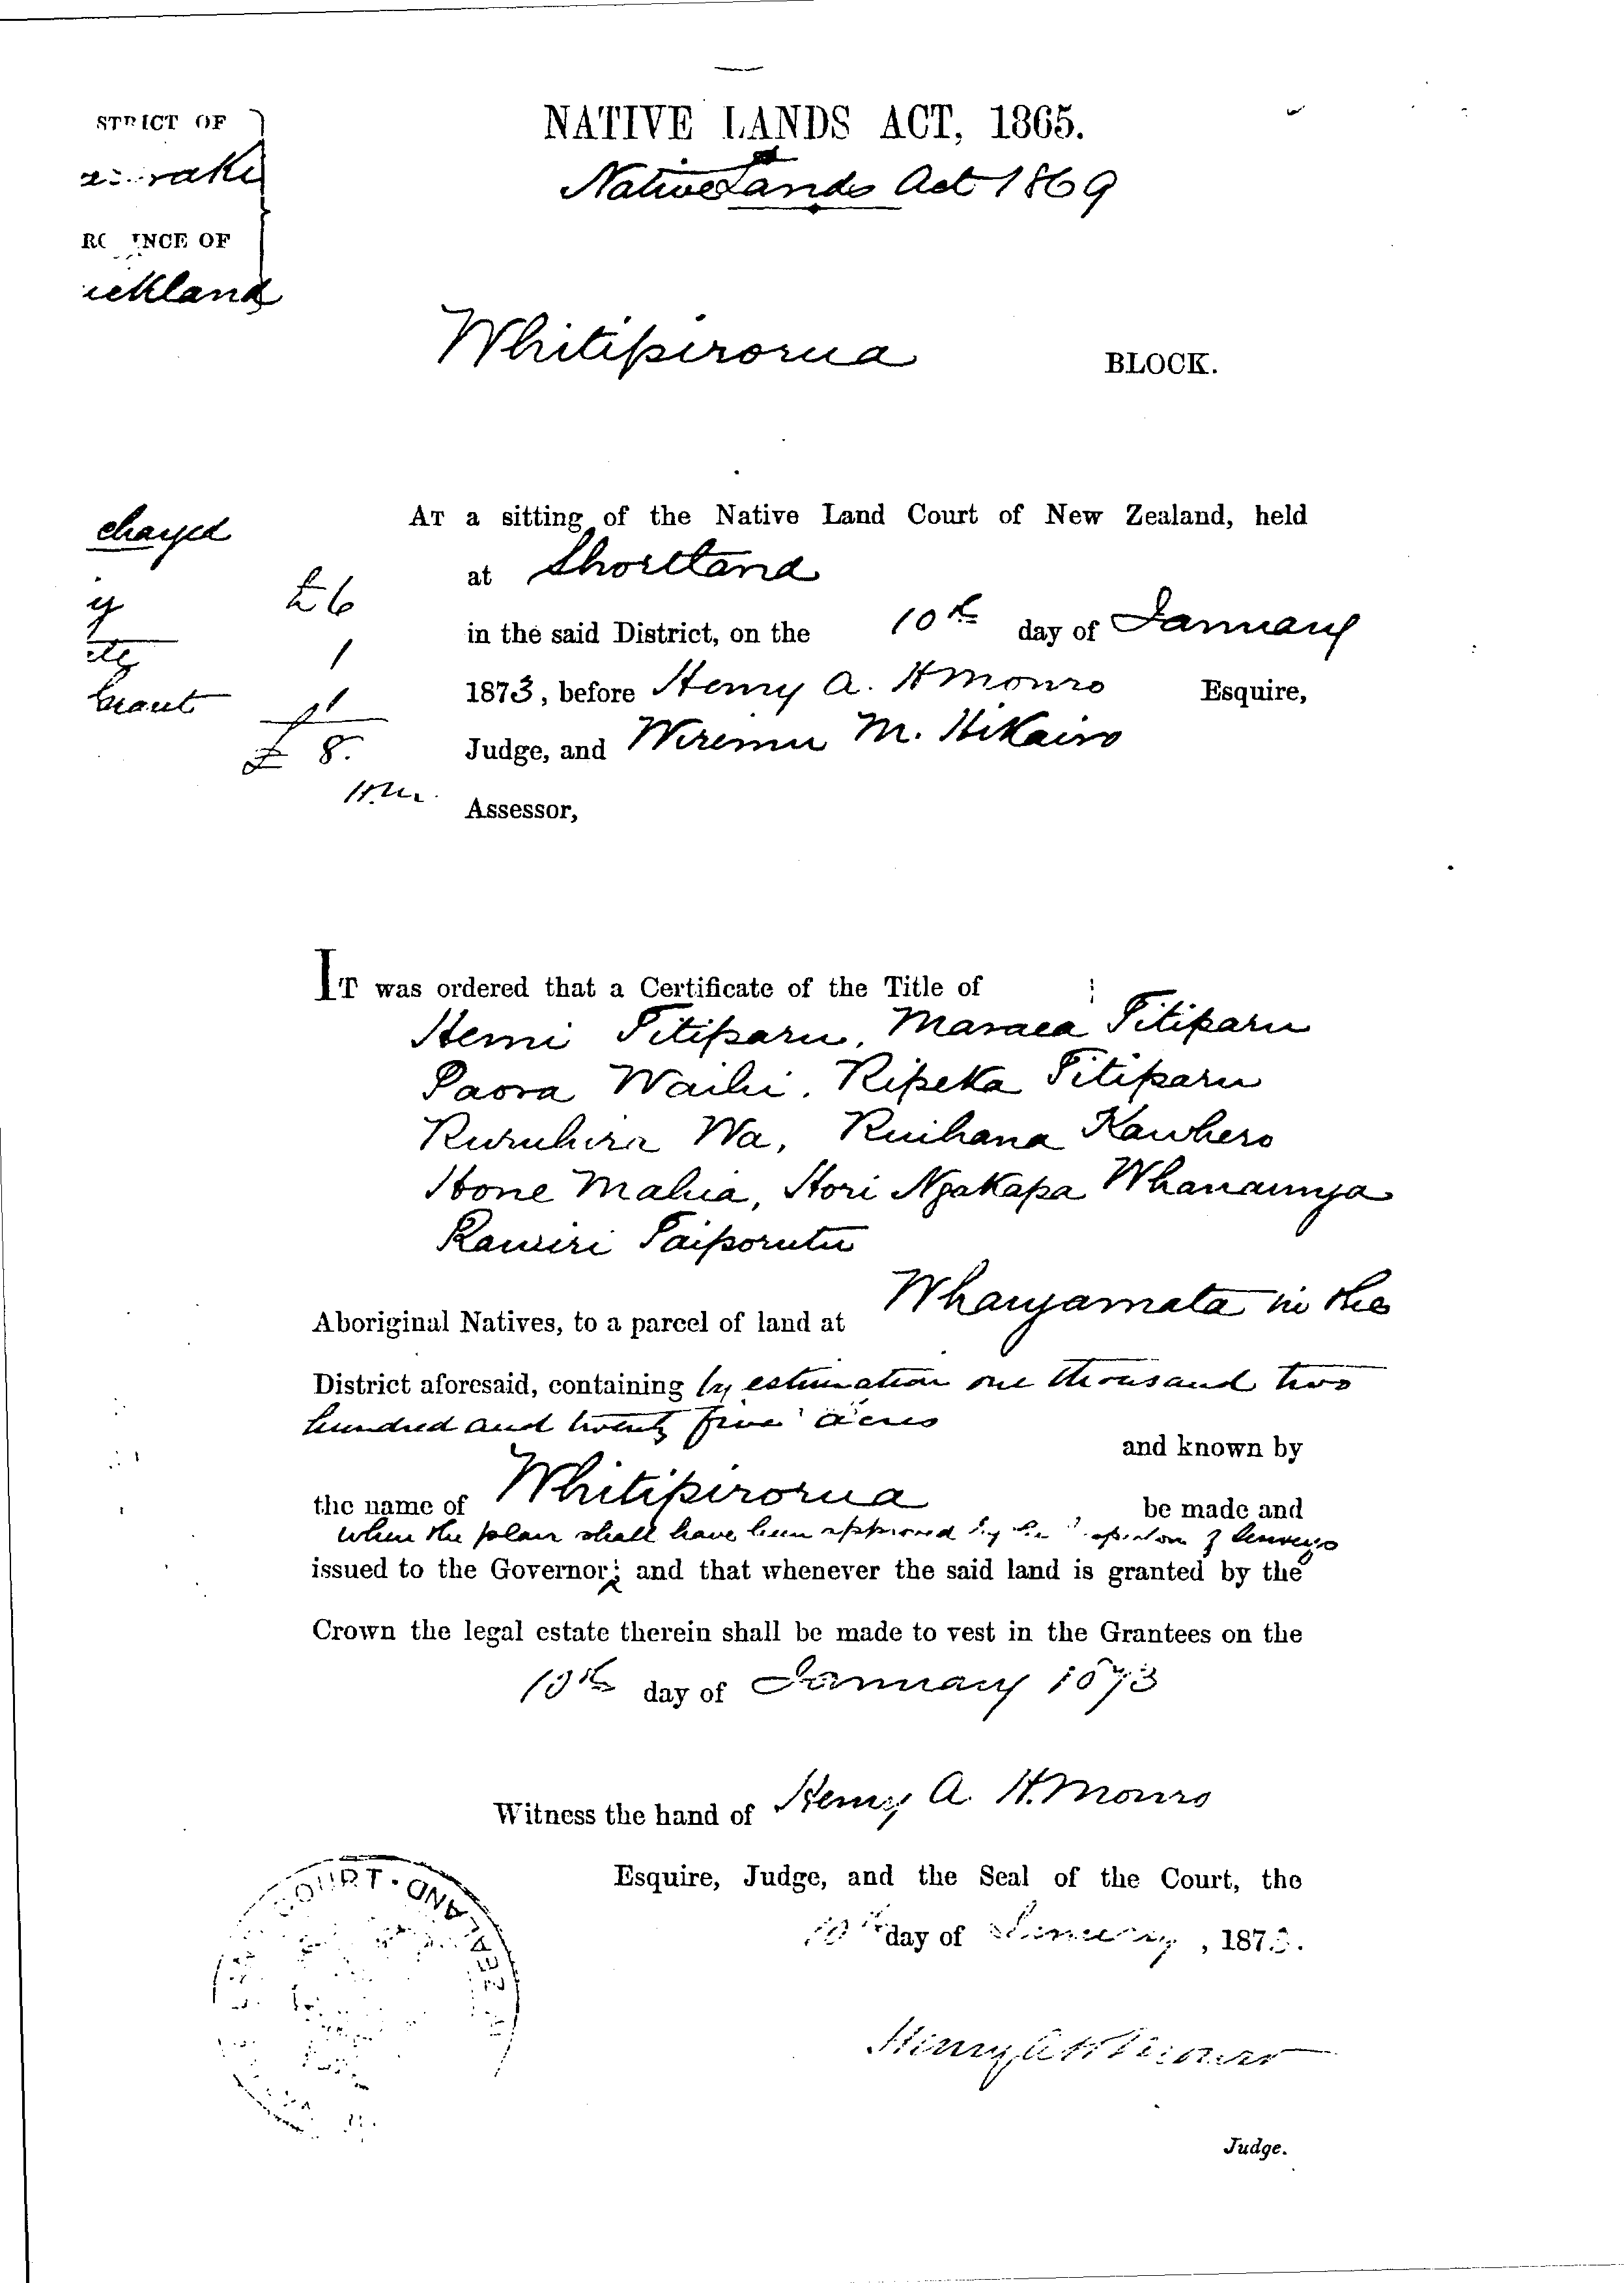 STRICT OF
RO INCE OF
uckland
NATIVE LANDS ACT, 1865.
Native Lands Act 1869
Whitipirorua BLOCK.
charged
£6
1
Grant 1
£ 8.
H.M.
AT a sitting of the Native Land Court of New Zealand, held
at Shortland
in the said District, on the 10th day of January
1873, before Henry A. H Monro Esquire,
Judge, and Wiremu M. Hikairo
Assessor,
IT was ordered that a Certificate of the Title of
Hemi Pitiparu, Maraea Pitiparu
Paora Waihi, Ripeka Pitiparu
Ruruhira Wa, Ruihana Kawhero
Hone Mahia, Hori Ngakapa Whanaunga
Rawiri Taiporutu
Aboriginal Natives, to a parcel of land at Whangamata in the
District aforesaid, containing by estimation one thousand two
hundred and twenty five acres
and known by
the name of Whitipirorua be made and
when the plan shall have been approved by the Inspector of Surveys
issued to the Governor; and that whenever the said land is granted by the
Crown the legal estate therein shall be made to vest in the Grantees on the
10th day of January 1873
Witness the hand of Henry A. H. Monro
Esquire, Judge, and the Seal of the Court, the
10th day of January, 1873.
Henry A H Monro
Judge.
COURT · AND
ZEALAND